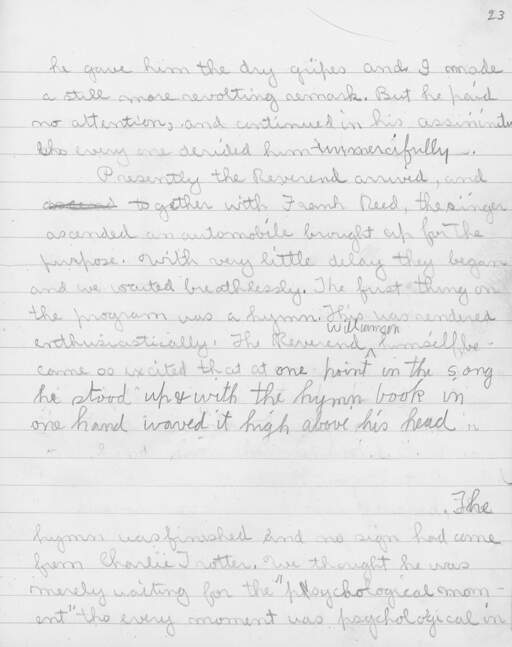 23
he gave him the dry gripes and I made
a still more revolting remark. But he paid
no attention, and continued in his assininity
tho every one derided him unmercifully.
Presently the Reverend arrived, and
together with Frank Reed, the singer
ascended an automobile brought up for the
purpose. With very little delay they began
and we waited breathlessly. The first thing on
the program was a hymn. This was rendered
enthusiastically. The Reverend Williamson himself be-
came so excited that at one point in the song
he stood up & with the hymn book in
one hand waved it high above his head.
The
hymn was finished and no sign had come
from Charlie Trotter. We thought he was
merely waiting for the "psychological mom-
ent" tho every moment was psychological in